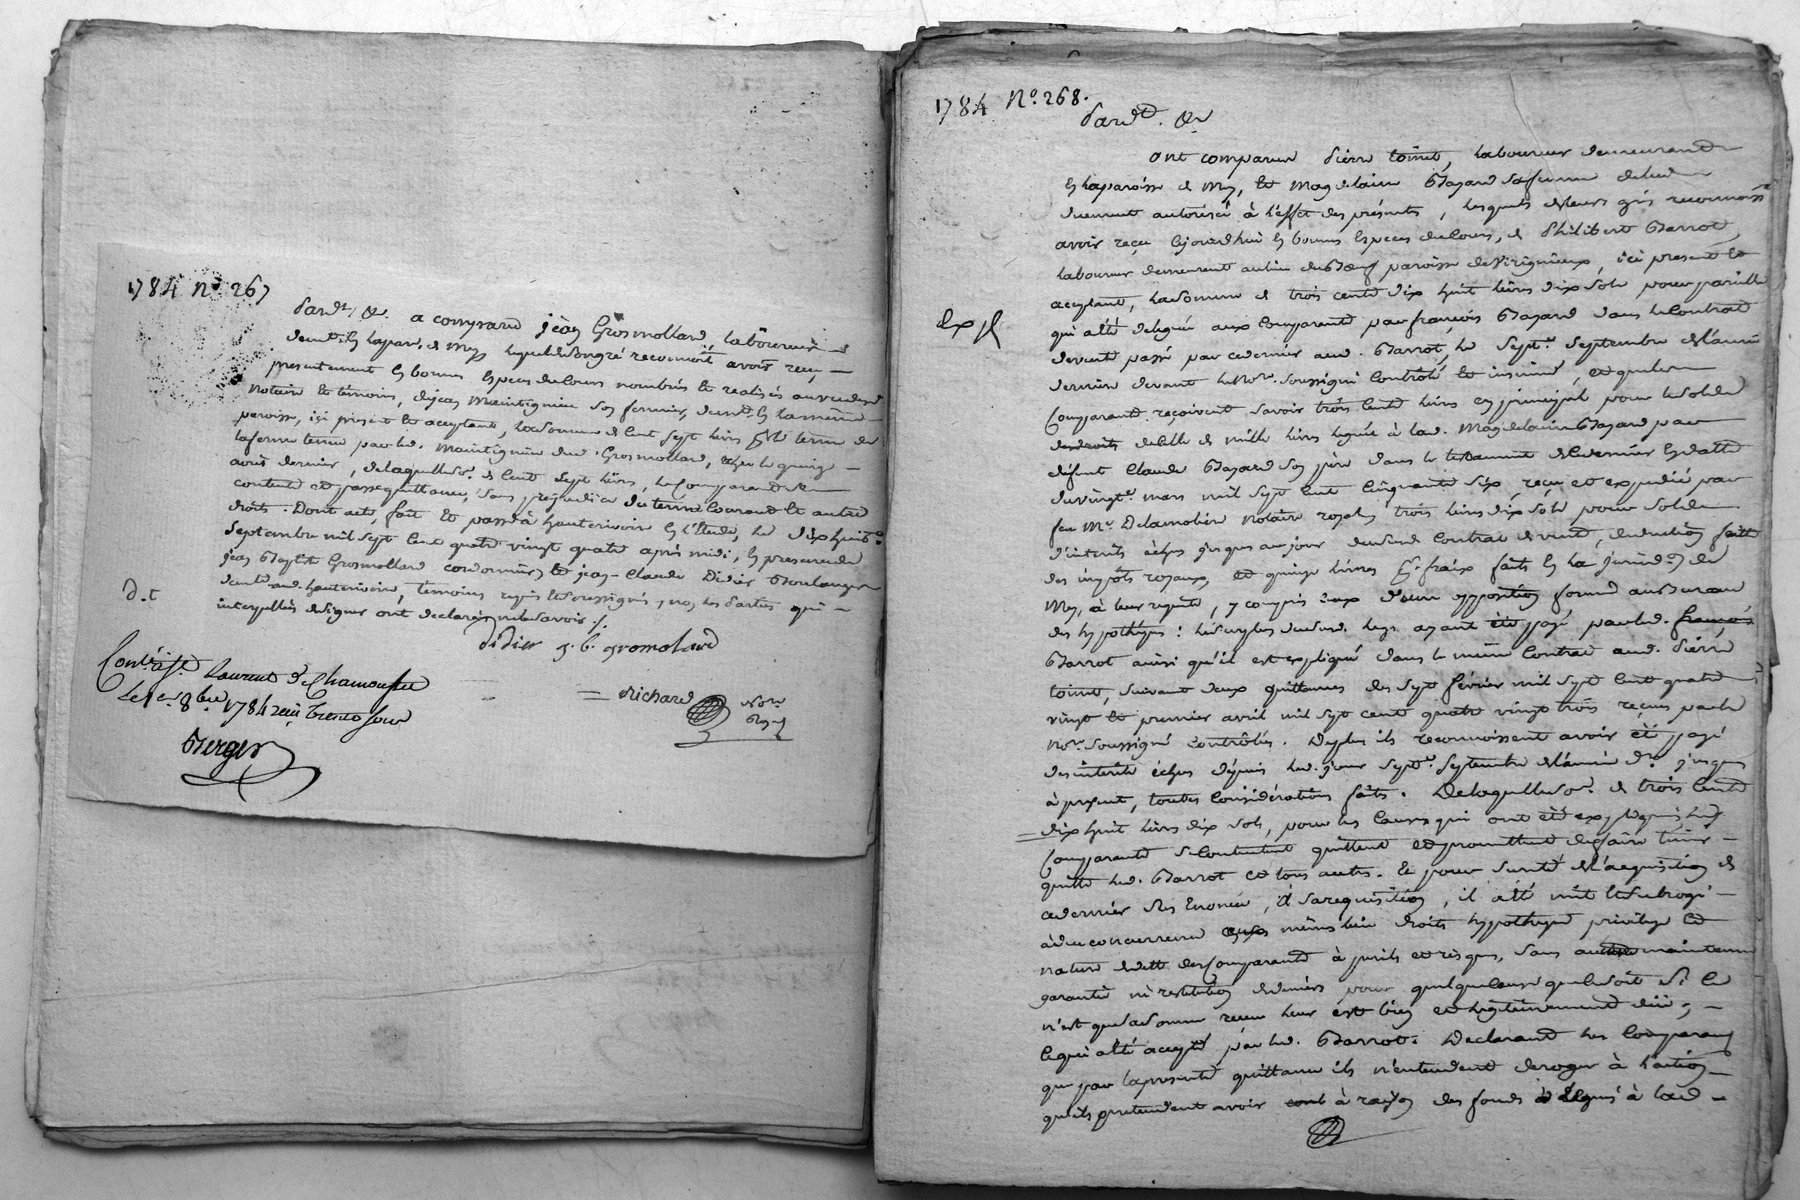 1784 No 267
Pardt. &c. a comparu jean Grosmollard, laboureur
demt. en la par. de Mey lequel de son gré reconnoit avoir reçu
presentement en bonnes especes de cours nombrées et realisées au vu de
notaire et temoins, de jean Maintignieu son fermier, demt. en la même
paroisse, ici present et acceptant, la somme de cent sept livres pr. le terme de
la ferme tenue par led. Maintignieu dud. Grosmollard, échu le quinze
août dernier, de laquelle so. de cent sept livres, le comparant se
contente et passe quittance, sans prejudice du terme courant et autres
droits. Dont acte, fait et passé à hauterivoire en l'étude, le dix huit
septembre mil sept cent quatre vingt quatre après midi, en presence de
jean Baptiste Grosmollard cordonnier et jean-Claude Didier Boulanger
demt. aud. hauterivoire, temoins requis et soussignés, non les parties qui
interpellées de signer ont declaré ne le savoir ./.
D. t
Didier j. b. gromolard
Richard Nore Roy
Contrôlé. St Laurent de Chamousset
Le 1er 8bre 1784 reçu trente sous
Berger
1784 No. 268.
Pardt. &c
Ont comparu Pierre toinet, laboureur demeurant
en la paroisse de Mey, et Magdelaine Bazard sa femme de lui
duement autorisée à l'effet des présentes, lesquels de leurs grés reconnoissent
avoir reçu cejourd'hui en bonnes especes de cours, de Philibert Barrot,
laboureur demeurant au lieu du paroisse de Virignieux, ici present et
acceptant, la somme de trois cents dix huit livres dix sols pour pareille
Exp
qui a été deleguée aux comparants par françois Bazard dans le contrat
de vente passé par ce dernier aud. Barrot, le sept septembre de l'année
derniere devant le Nore. soussigné contrôlé et insinué, et que les
comparants reçoivent savoir trois cents livres en principal pour le solde
des droits de celle de mille livres leguée à lad. Magdelaine Bazard par
défunt Claude Bazard son père dans le testament de ce dernier en datte
du vingt mars mil sept cent cinquante six, reçu et expedié par
feu Me. Delamoliere notaire royal, trois livres dix sols pour solde
d'interets échus jusques au jour dudit contrat de vente, deduction faite
des impôts royaux, et quinze livres pr. fraix faits en la jurisdon. de
Mey, à leur requête, y compris ceux d'une opposition formée au bureau
des hypothéques: le surplus dudit legs ayant été payé par led. françois
Barrot ainsi qu'il est expliqué dans le même contrat aud. Pierre
toinet, suivant deux quittances des sept février mil sept cent quatre
vingt et premier avril mil sept cent quatre vingt trois reçues par le
Nore. soussigné contrôlées. De plus ils reconnoissent avoir été payé
des interets échus depuis led. jour sept septembre de l'année dre. jusques
à present, toutes considérations faites. De laquelle so. de trois cents
dix huit livres dix sols, pour les causes qui ont été expliquées, les
comparants se contentent quittent et promettent de faire tenir
quitte led. Barrot et tous autres. Et pour sureté de l'acquisition de
ce dernier sus énoncée, à sa requisition, il a été mis et subrogé
à due concurrence aux mêmes lieu droits hypotheque privilege et
nature de dette des comparants à perils et risques, sans aucune maintenue
garantie ni restitution de deniers pour quelque cause que ce soit si ce
n'est que la somme reçue leur est bien et légitimement due;
ce qui a été accepté par led. Barrot. Declarant les comparants
que par la presente quittance ils n'entendent deroger à l'action
qu'ils pretendent avoir à raison des fonds delegués à lad